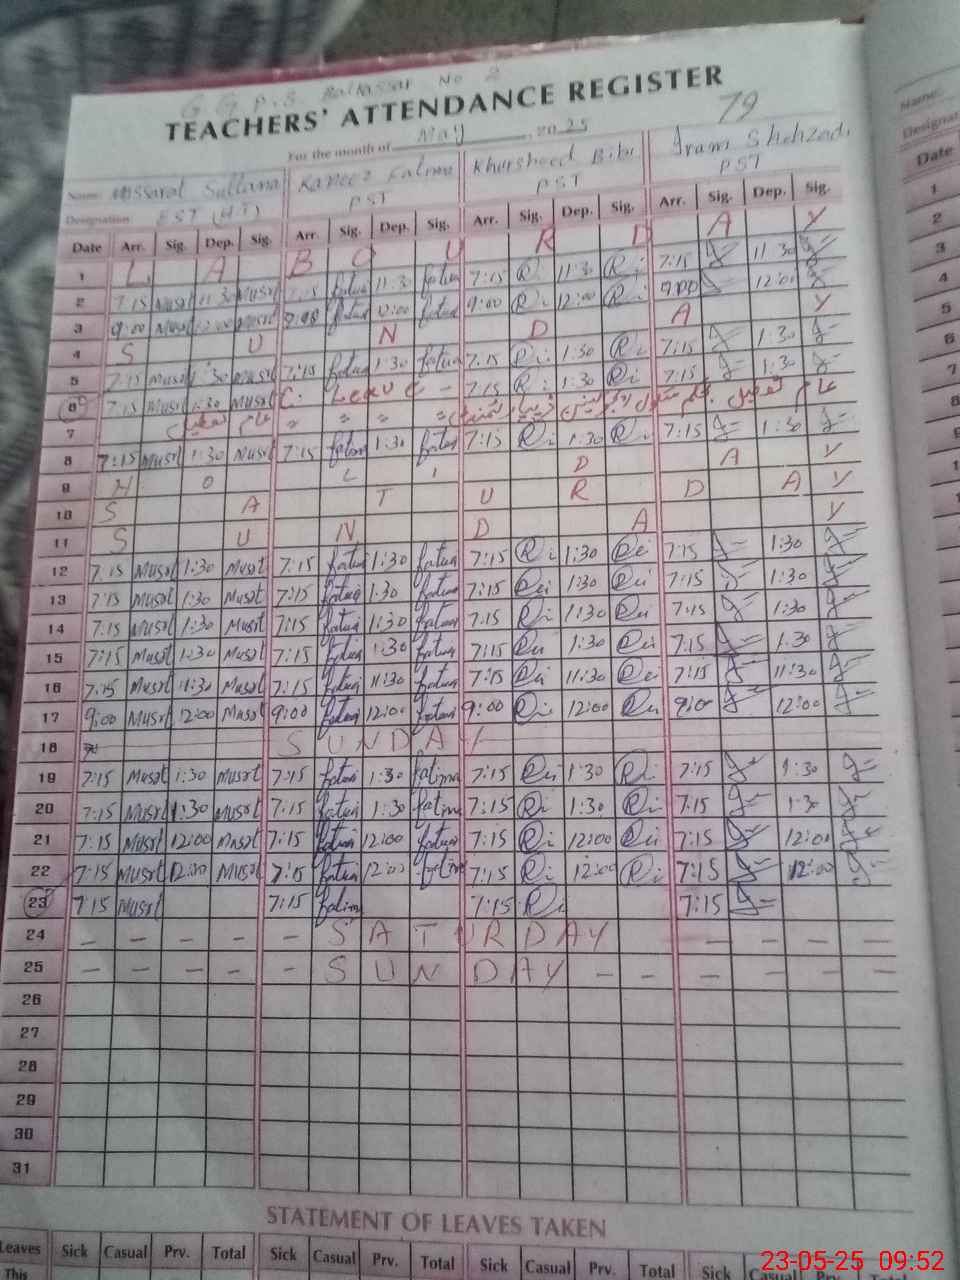 G.G.P.S. Balkassar No 2
TEACHERS' ATTENDANCE REGISTER
79
For the month of May, 2025
Name Mussarat Sultana Kaneez Fatima Khursheed Bibi Iram Shehzadi
Designation EST (HT) PST PST PST
Date Arr. Sig. Dep. Sig. Arr. Sig. Dep. Sig. Arr. Sig. Dep. Sig. Arr. Sig. Dep. Sig.
1 L A B O U R D A Y
2 7:15 Musrt 11:30 Musrt 7:15 fatima 11:30 fatima 7:15 11:30 7:15 11:30
3 9:00 Musrt 12:00 Musrt 9:00 fatima 12:00 fatima 9:00 12:00 9:00 12:00
4 S U N D A Y
5 7:15 Musrt 1:30 Musrt 7:15 fatima 1:30 fatima 7:15 1:30 7:15 1:30
6 7:15 Musrt 1:30 Musrt C. Leave - 7:15 1:30 7:15 1:30
7 عام تعطیل " " " " عام تعطیل
8 7:15 Musrt 1:30 Musrt 7:15 fatima 1:30 fatima 7:15 1:30 7:15 1:30
9 H O L I D A Y
10 S A T U R D A Y
11 S U N D A Y
12 7:15 Musrt 1:30 Musrt 7:15 fatima 1:30 fatima 7:15 1:30 7:15 1:30
13 7:15 Musrt 1:30 Musrt 7:15 fatima 1:30 fatima 7:15 1:30 7:15 1:30
14 7:15 Musrt 1:30 Musrt 7:15 fatima 1:30 fatima 7:15 1:30 7:15 1:30
15 7:15 Musrt 1:30 Musrt 7:15 fatima 1:30 fatima 7:15 1:30 7:15 1:30
16 7:15 Musrt 11:30 Musrt 7:15 fatima 11:30 fatima 7:15 11:30 7:15 11:30
17 9:00 Musrt 12:00 Musrt 9:00 fatima 12:00 fatima 9:00 12:00 9:00 12:00
18 S U N D A Y
19 7:15 Musrt 1:30 Musrt 7:15 fatima 1:30 fatima 7:15 1:30 7:15 1:30
20 7:15 Musrt 1:30 Musrt 7:15 fatima 1:30 fatima 7:15 1:30 7:15 1:30
21 7:15 Musrt 12:00 Musrt 7:15 fatima 12:00 fatima 7:15 12:00 7:15 12:00
22 7:15 Musrt 12:00 Musrt 7:15 fatima 12:00 fatima 7:15 12:00 7:15 12:00
23 7:15 Musrt 7:15 fatima 7:15 7:15
24 - - - - - S A T U R D A Y - - - -
25 - - - - - S U N D A Y - - - - - -
26
27
28
29
30
31
STATEMENT OF LEAVES TAKEN
Leaves Sick Casual Prv. Total Sick Casual Prv. Total Sick Casual Prv. Total Sick Casual Prv. Total
This
Name.
Designat
Date
1
2
3
4
5
6
7
8
9
23-05-25 09:52